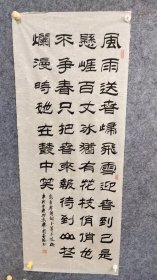 風雨送春歸飛雪迎春到已是
懸崖百丈冰猶有花枝俏俏也
不爭春只把春來報待到山花
爛漫時她在叢中笑